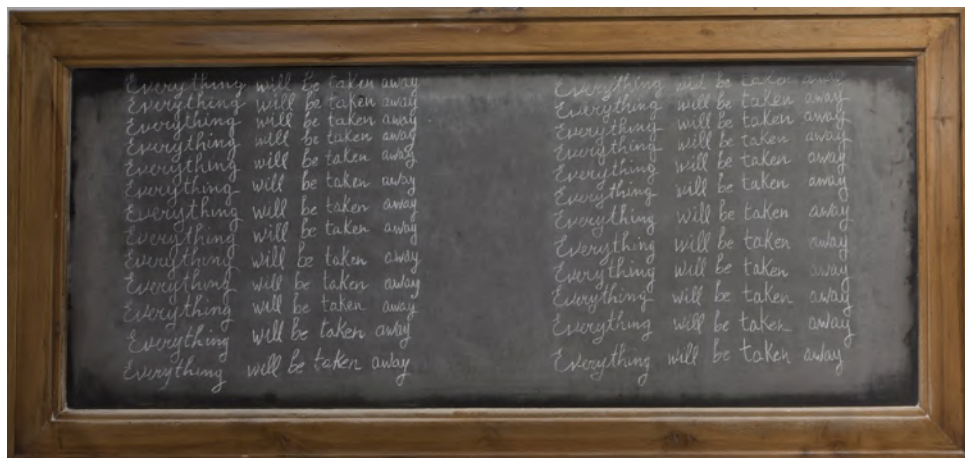 Everything will be taken away
Everything will be taken away
Everything will be taken away
Everything will be taken away
Everything will be taken away
Everything will be taken away
Everything will be taken away
Everything will be taken away
Everything will be taken away
Everything will be taken away
Everything will be taken away
Everything will be taken away
Everything will be taken away
Everything be away
Everything will be taken away
Everything will be taken away
Everything will be taken away
Everything will be taken away
Everything will be taken away
Everything will be taken away
Everything will be taken away
Everything will be taken away
Everything will be taken away
Everything will be taken away
Everything will be taken away